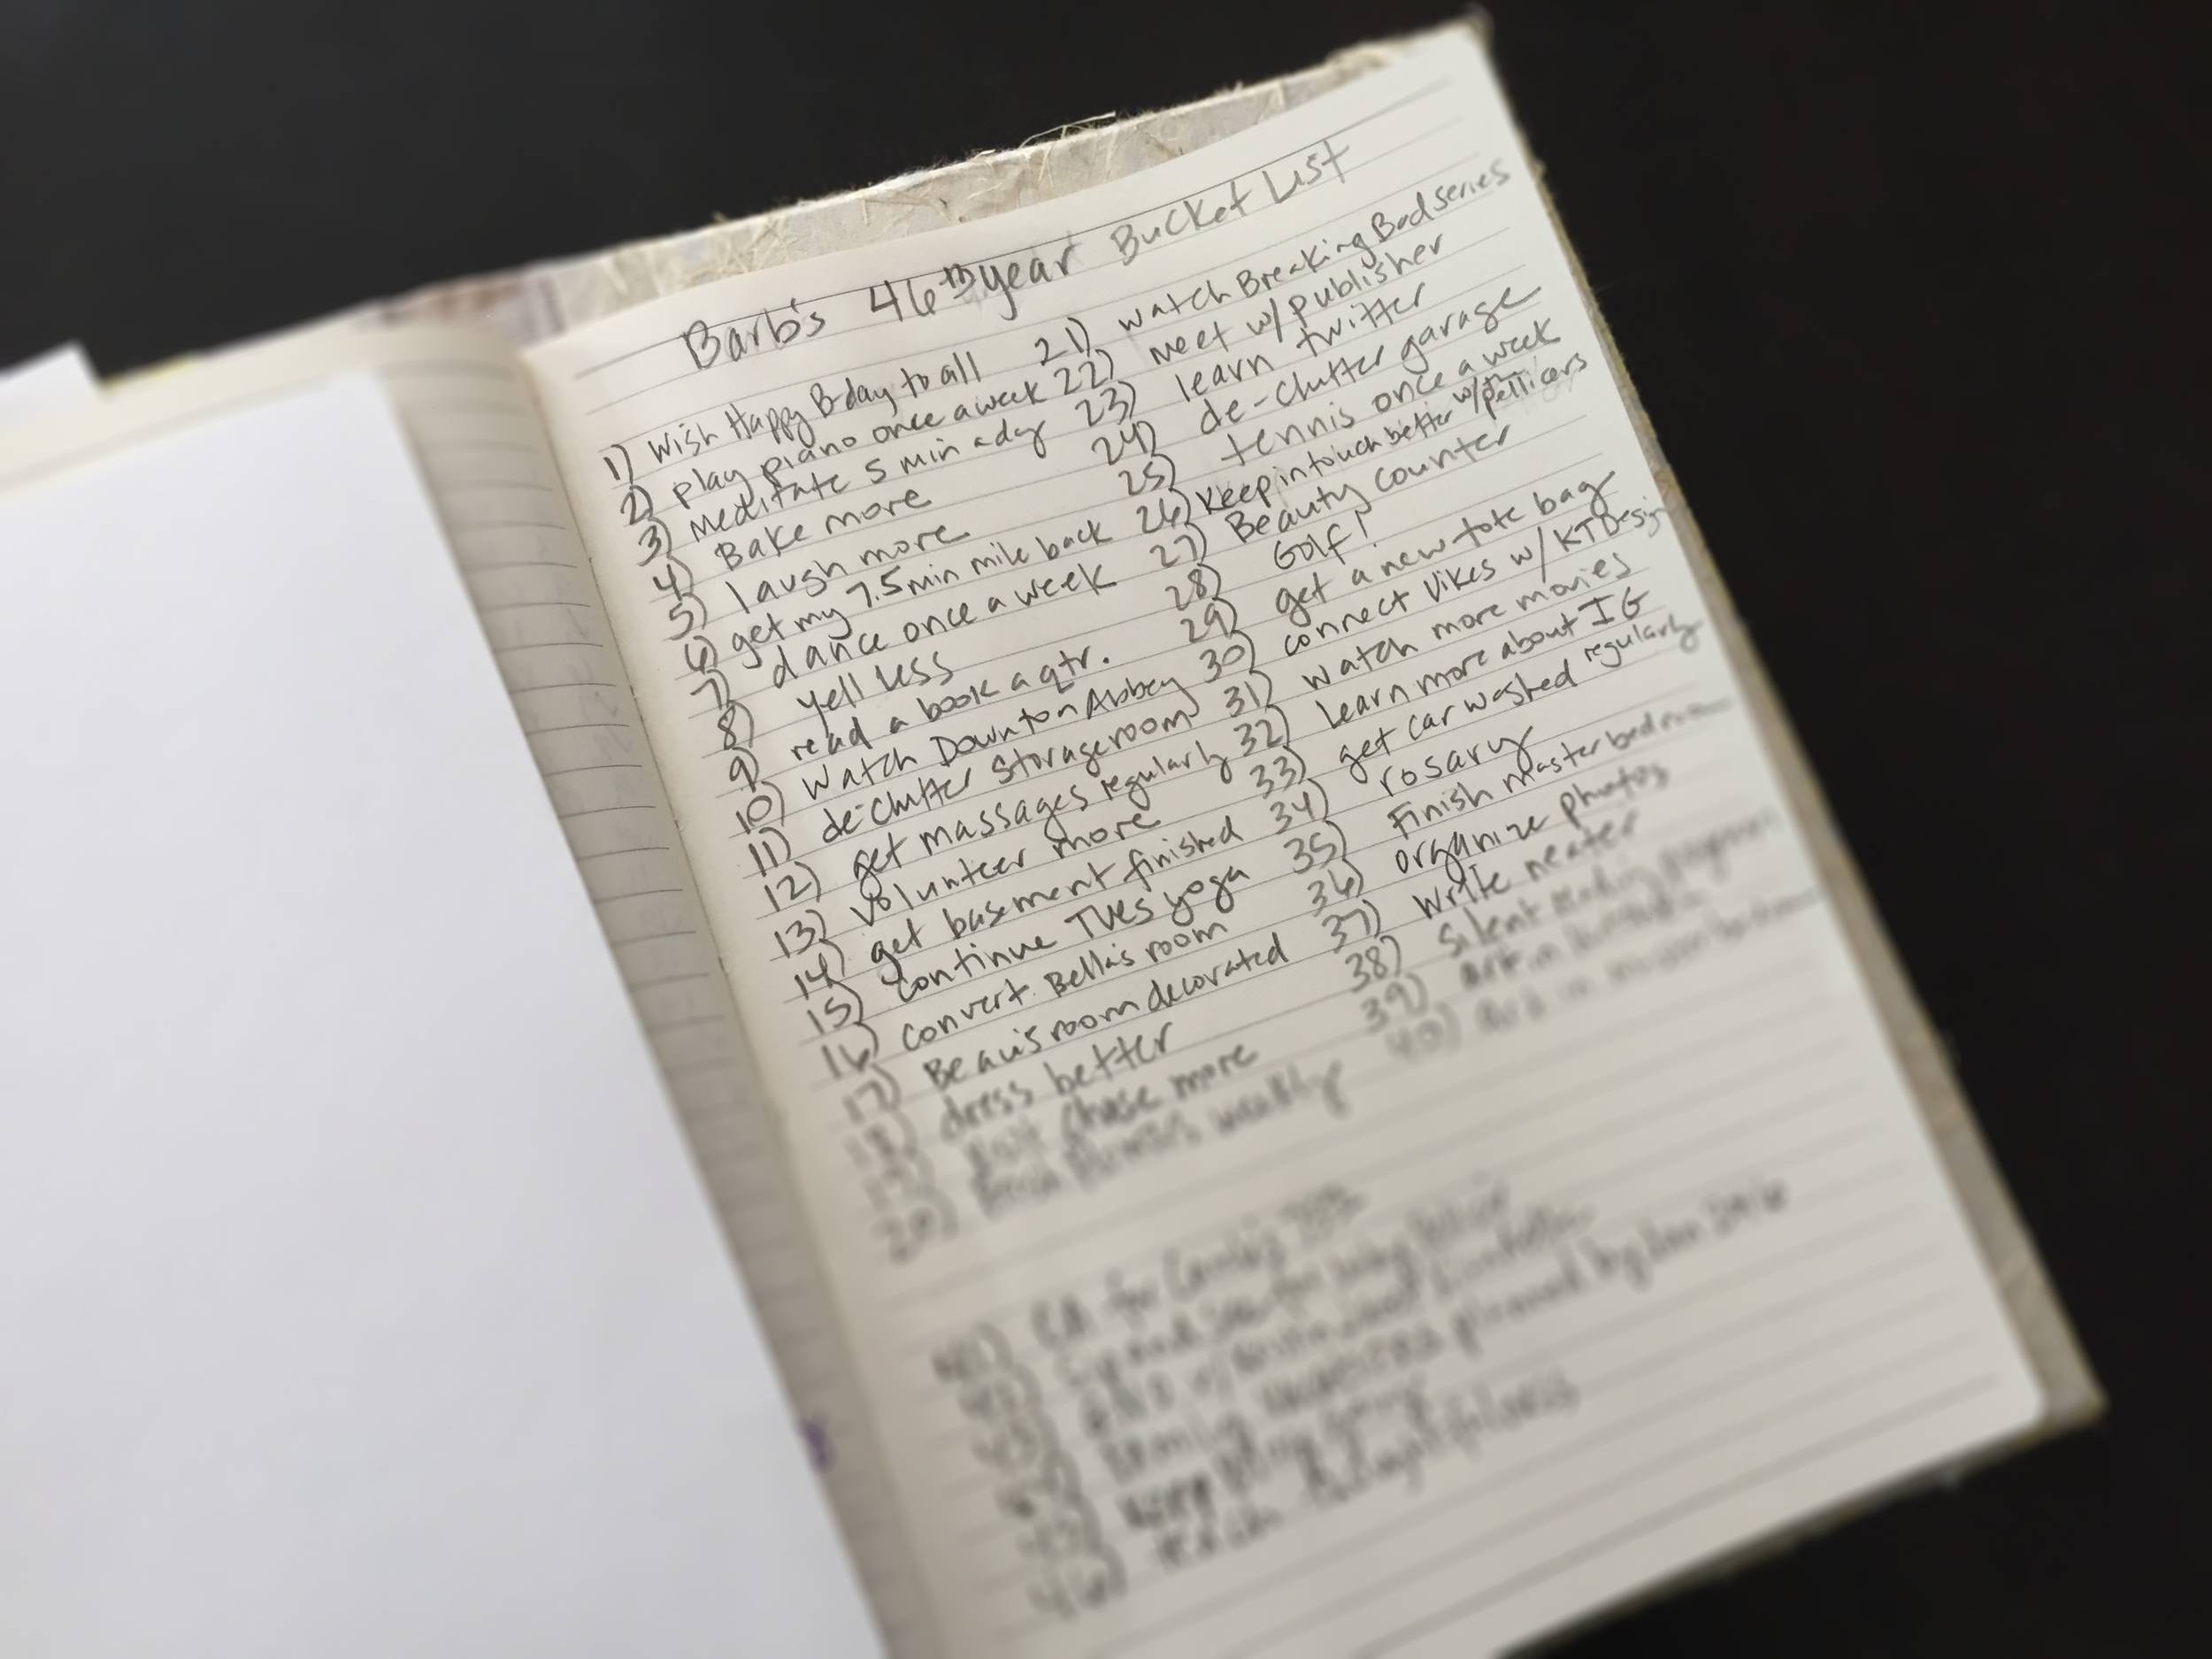 Barb's 46th year Bucket List
1) Wish Happy B-day to all
2) play piano once a week
3) Meditate 5 min a day
4) Bake more
5) laugh more
6) get my 7.5 min mile back
7) dance once a week
8) yell less
9) read a book a qtr.
10) Watch Downton Abbey
11) de-clutter Storage room
12) get massages regularly
13) Volunteer more
14) get basement finished
15) continue TUES yoga
16) convert Bella's room
17) Beau's room decorated
18) dress better
19) chase more
20) weekly
21) watch Breaking Bad series
22) Meet w/ publisher
23) learn twitter
24) de-clutter garage
25) tennis once a week
26) Keep in touch better w/ the pellicers
27) Beauty counter
28) Golf!
29) get a new tote bag
30) connect Vikes w/ KT Design
31) watch more movies
32) Learn more about IG
33) get car washed regularly
34) rosary
35) Finish master bedroom
36) organize photos
37) Write neater
38) Silent reading
39) Art in
40) Art in
41) for
42)
43)
44) Family planned by
45) Keep
46) thoughtfulness